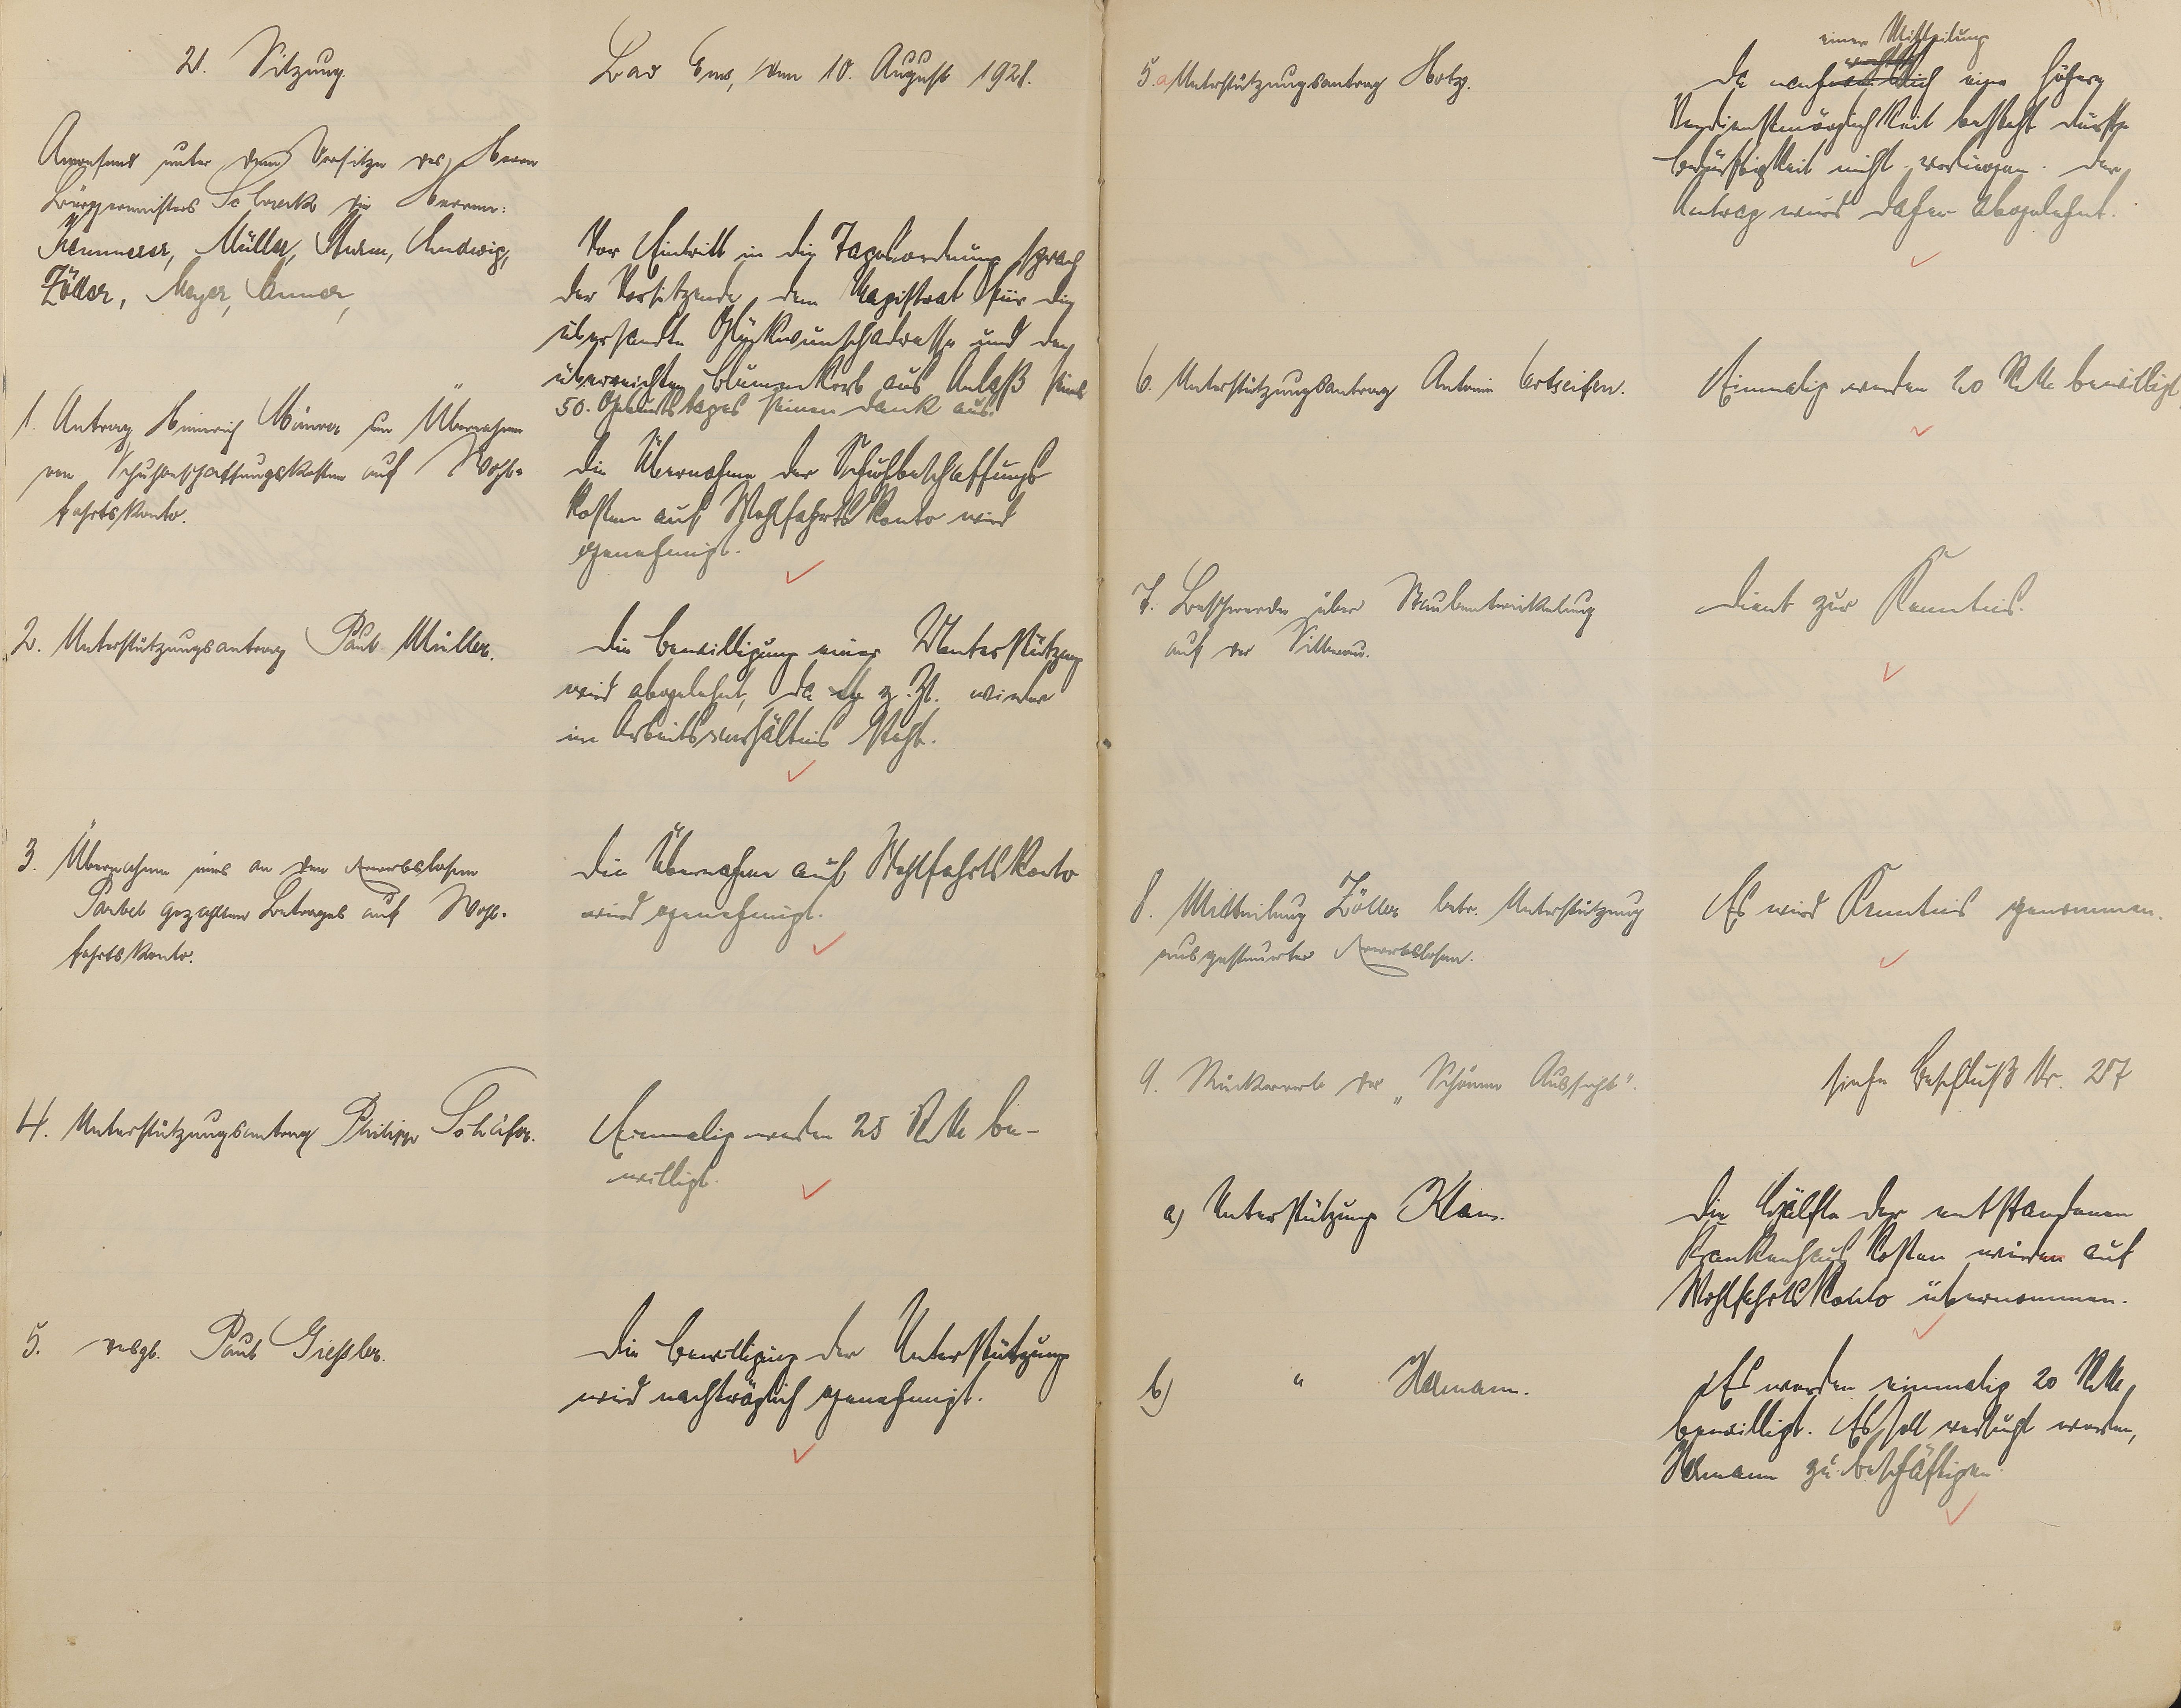 21. Sitzung.
Anwesend unter dem Vorsitze des Herrn
Bürgermeisters Schreck die Herren:
Kemmerer, Müller, Sturm, Ludwig,
Zöller, Meyer,
1. Antrag Heinrich um Übernahme
von Schuhanschaffungskosten auf Wohl-
fahrtskonto.
2. Unterstützungsantrag Paul Müller.
3. Übernahme eines an den Erwerbslosen
gezahlten Betrages auf Wohl-
fahrtskonto.
4. Unterstützungsantrag Philipp Schäfer.
5. desgl. Paul Gießler.
Bad Ems, den 10. August 1928.
Vor Eintritt in die Tagesordnung sprach
der Vorsitzende dem Magistrat für die
übersandte Glückwunschadresse und den
überreichten Blumenkorb aus Anlaß seines
50. Geburtstages seinen Dank aus.
Die Übernahme der Schuhbeschaffungs
kosten auf Wohlfahrtskonto wird
genehmigt.
Die Bewilligung einer Unterstützung
wird abgelehnt, da er z. Zt. wieder
im Arbeitsverhältnis steht.
Die Übernahme auf Wohlfahrtskonto
wird genehmigt.
Einmalig werden 25 RM be-
willigt.
Die Bewilligung der Unterstützung
wird nachträglich genehmigt.
5.a Unterstützungsantrag Hotz.
6. Unterstützungsantrag Antonie Ertseifen.
7. Beschwerde über Staubentwickelung
auf der Silberau.
8. Mitteilung Zöller betr. Unterstützung
ausgesteuerter Erwerbslosen.
9. Rückerwerb der „Schönen Aussicht".
a) Unterstützung Klam.
b) " Hermann.
einer Mitteilung
Da nach eine höhere
Verdienstmöglichkeit besteht dürfte
Bedürftigkeit nicht vorliegen. Der
Antrag wird daher abgelehnt.
Einmalig werden 20 RM bewilligt
Dient zur Kenntnis.
Es wird Kenntnis genommen.
siehe Beschluß Nr. 287
Die Hälfte der entstandenen
Krankenhauskosten werden auf
Wohlfahrtskonto übernommen.
Es werden einmalig 20 RM
bewilligt. Es soll versucht werden,
Hermann zu beschäftigen.